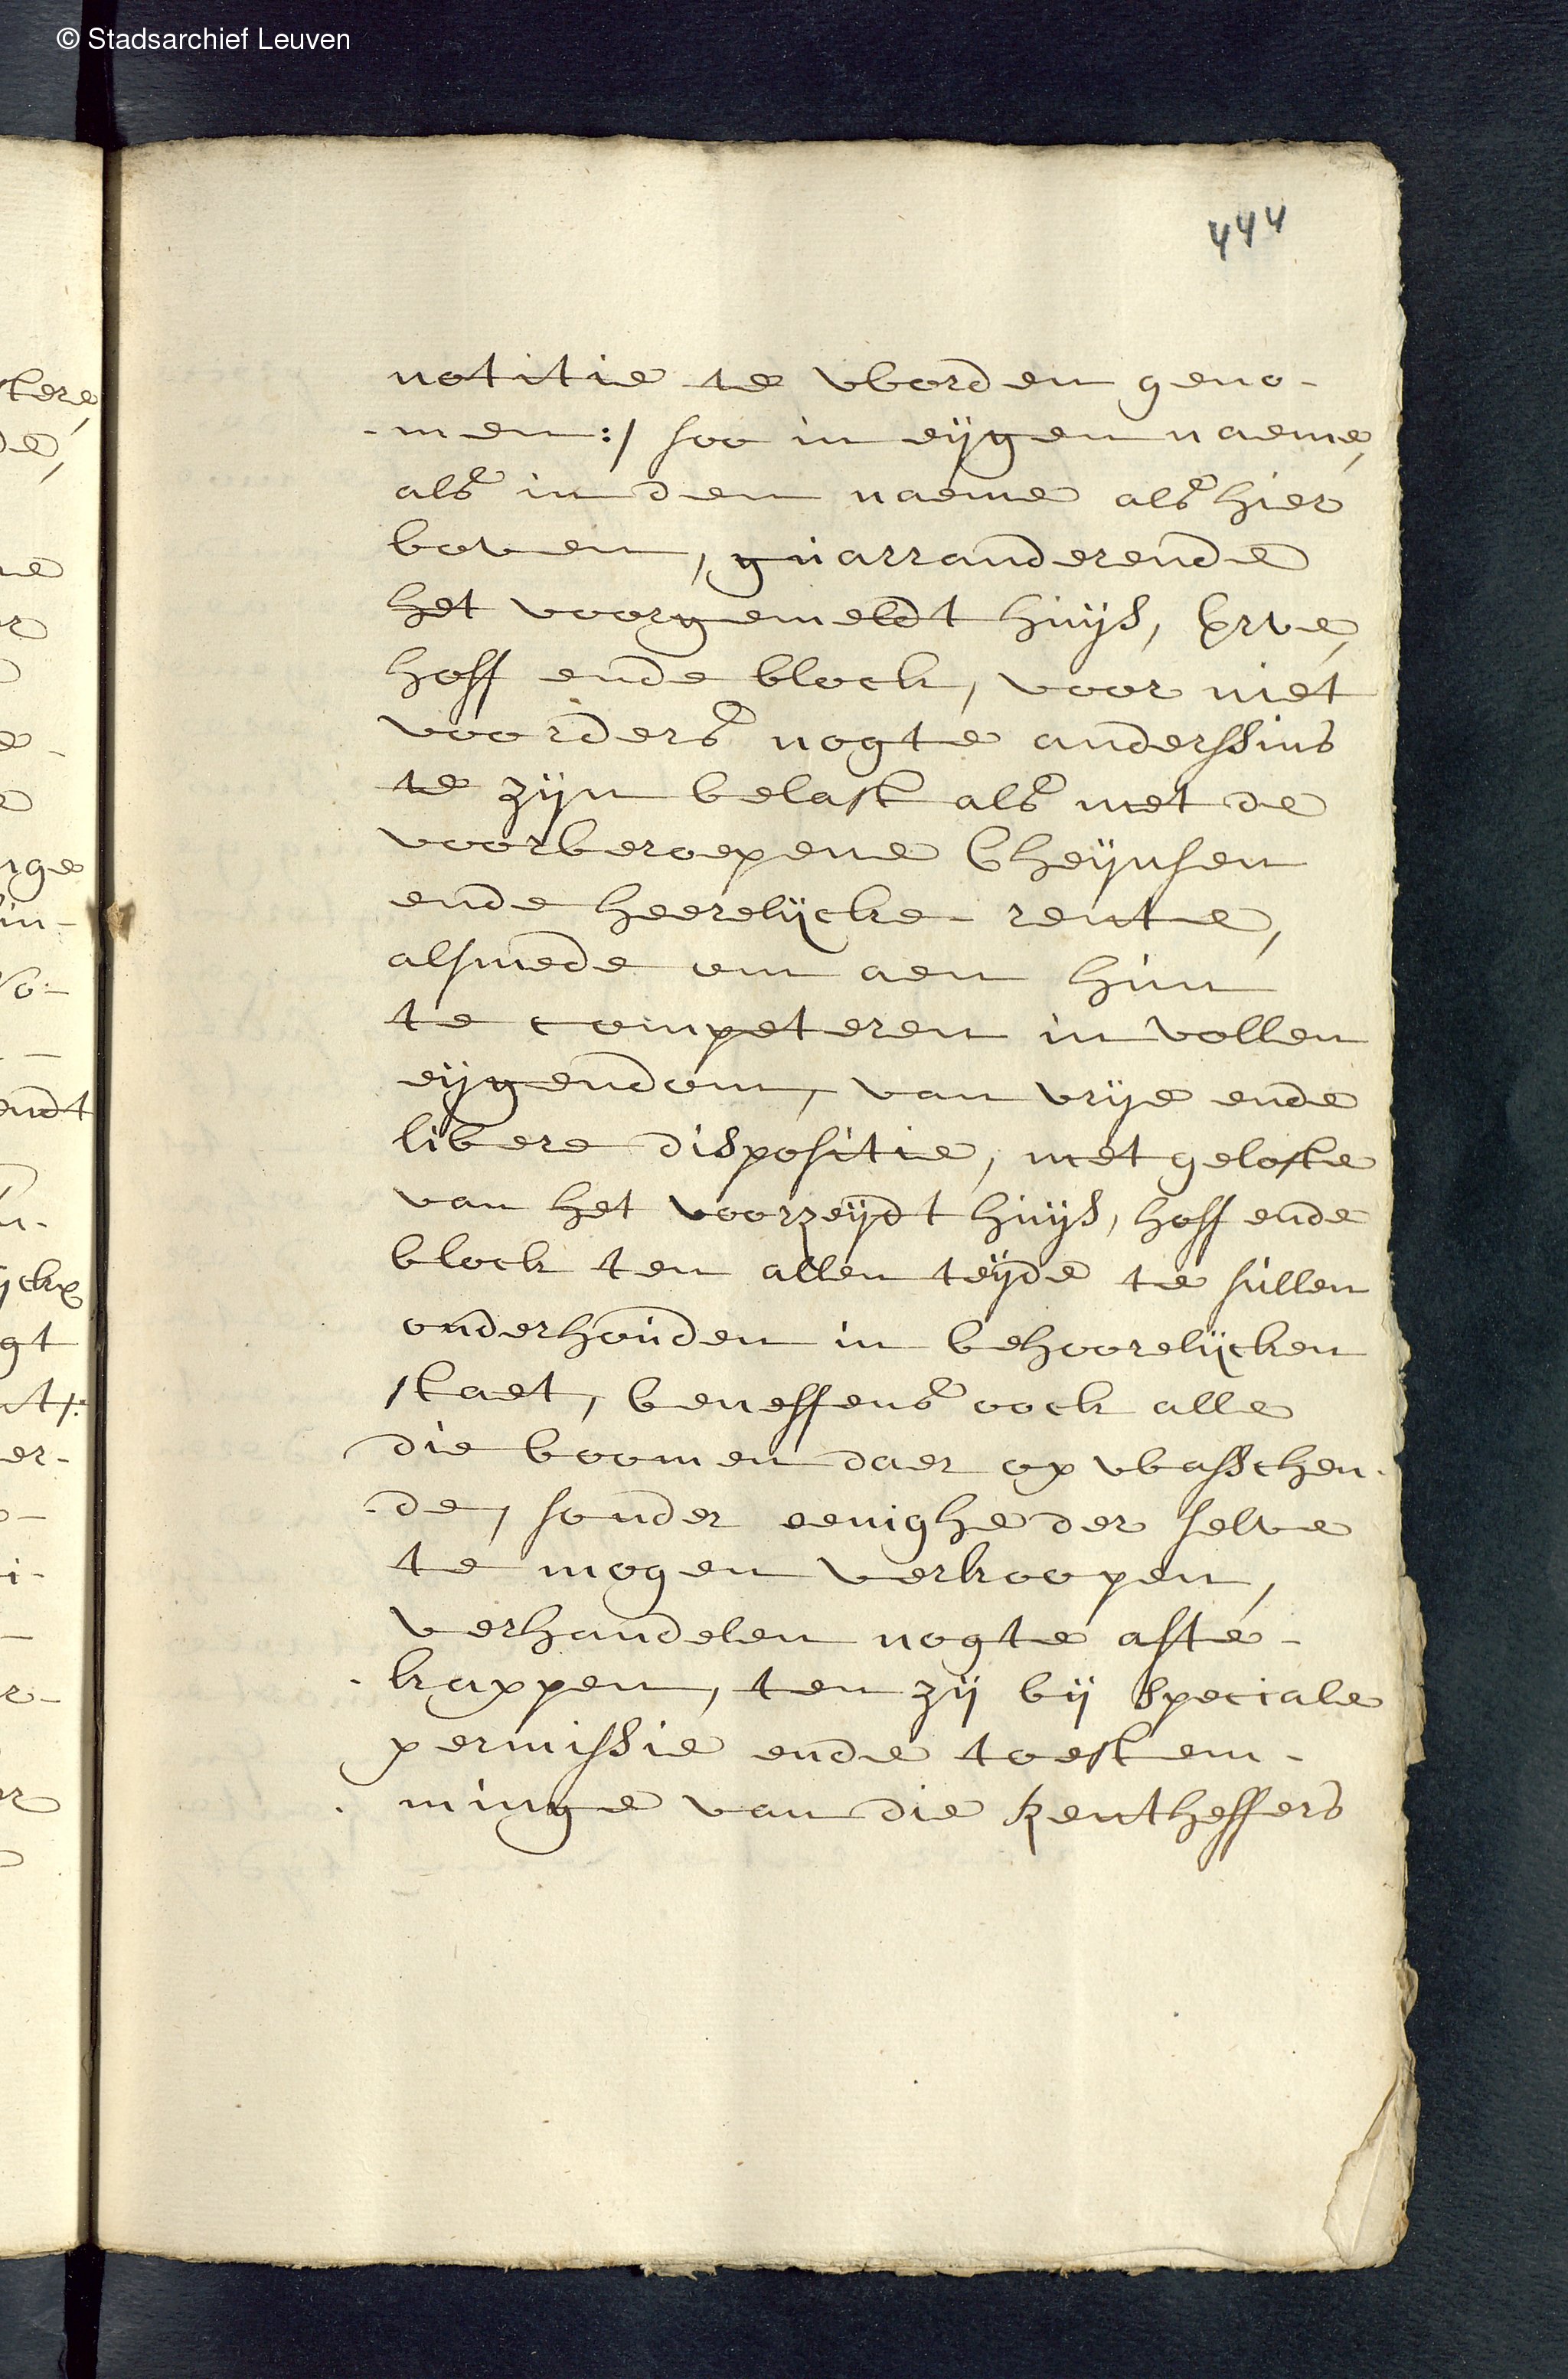 © Stadsarchief Leuven
444
notitie te worden geno-
-men:/ soo in eijgen naeme,
als in den naeme als hier
boven, guarranderende
het voorgemeldt huijs, Erve,
hoff ende block, voor niet
voorders nogte anderssins
te zijn belast als met de
voorberoepene Cheijnsen
ende heerelijcke rente,
alsmede om aen hun
te competeren in vollen
eijgendom, van vrije ende
libere dispositie, met geloste
van het voorzeijdt huijs, hoff ende
block ten allen teijde te sullen
onderhouden in behoorelijcken
staet, beneffens oock alle
die boomen daer op wasschen-
-de, sonder eenighe der selve
te mogen verkoopen,
verhandelen nogte afte-
-kappen, ten zij bij speciale
permissie ende toestem-
-minge van die Rentheffers